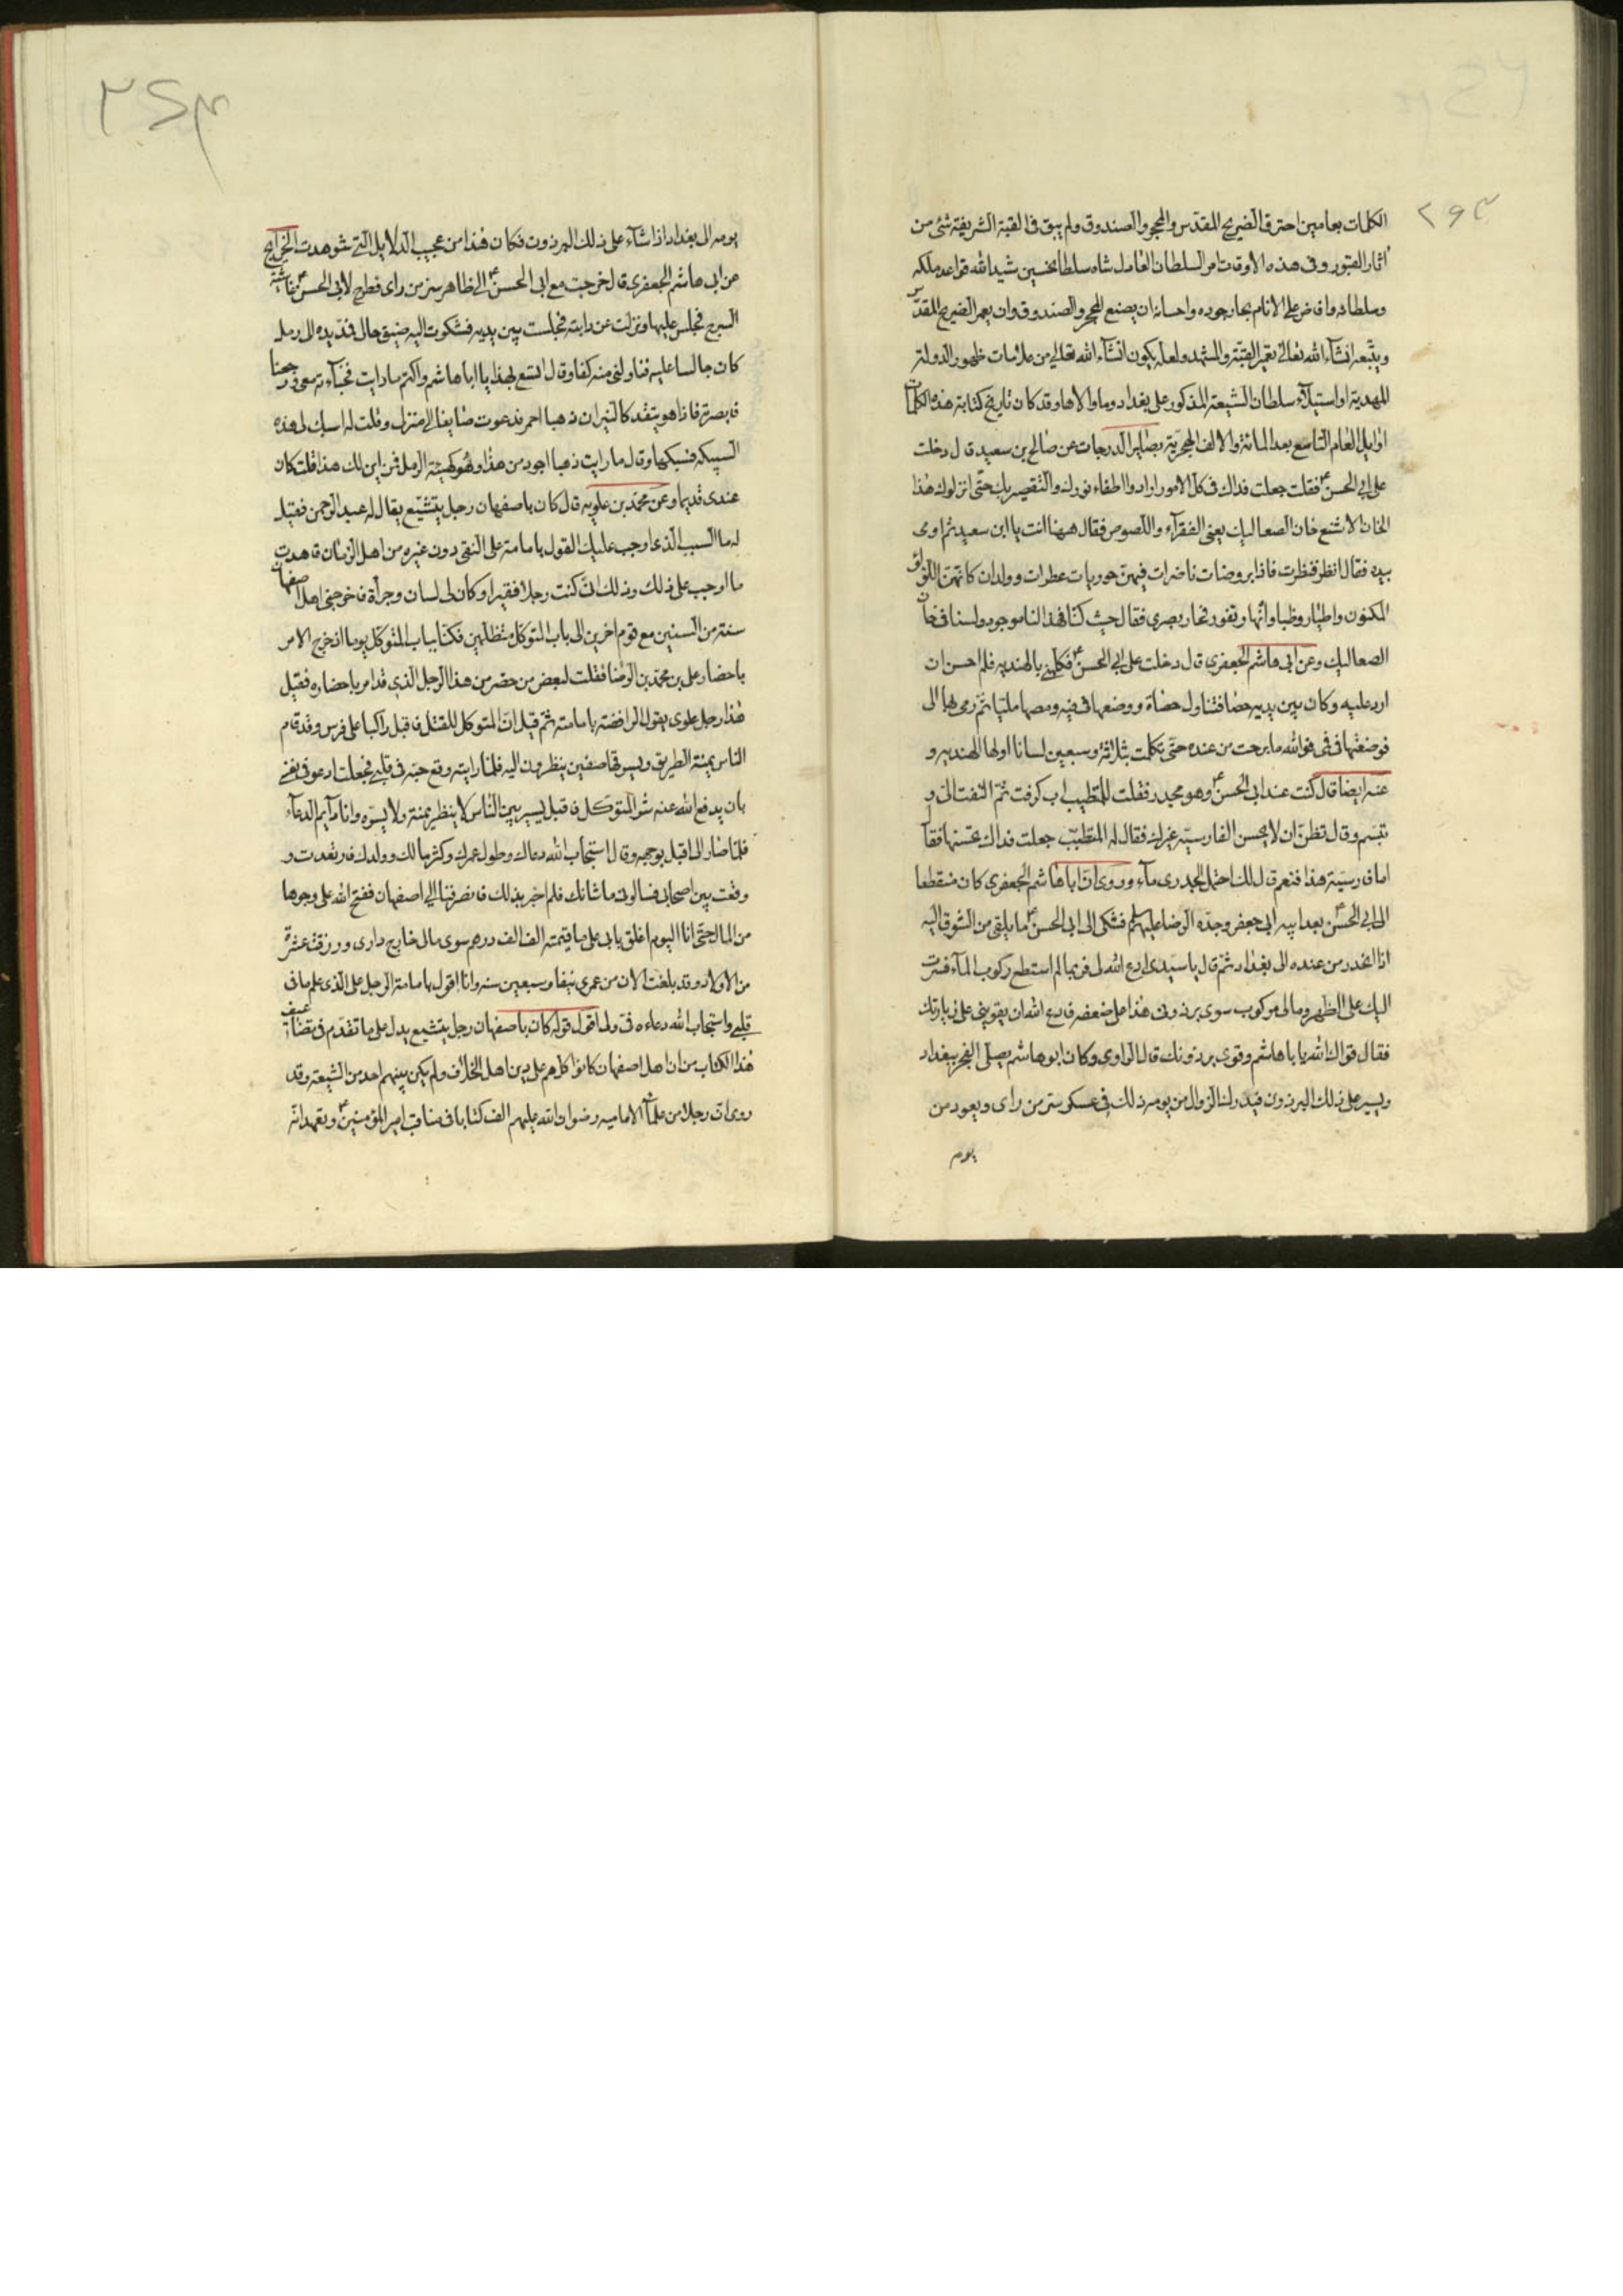 ٢٩٣
الكلمات بعامين احترق الضريح المقدس والمحجر والصندوق ولم يبق في القبة الشريفة شئ من
اثار القبور وفي هذه الاوقات امر السلطان العادل شاه سلطان حسين شيد الله قواعد ملكه
وسلطانه وافاض على الانام بحار جوده واحسانه ان يصنع المحجر والصندوق وان يعمر الضريح المقدس
ويتبعه انشآء الله تعالى تعمير القبة والمشهد ولعله يكون انشآء الله تعالى من علامات ظهور الدولة
المهدية او استيلآء سلطان الشيعة المذكور على بغداد وما والاها وقد كان تاريخ كتابة هذه الكلمات
اوايل العام التاسع بعد المائة والالف الهجرية بصاير الدرجات عن صالح بن سعيد قال دخلت
على ابي الحسن ع فقلت جعلت فداك في كل الامور ارادوا اطفاء نورك والتقصير بك حتى انزلوك هذا
الخان الاشنع خان الصعاليك يعني الفقرآء واللصوص فقال ههنا انت يا ابن سعيد ثم اومى
بيده فقال انظر فنظرت فاذا بروضات ناضرات فيهن حوريات عطرات وولدان كانهن اللؤلؤ
المكنون واطيار وظبا وانهار تفور فحار بصري فقال حيث كنا فهذا لنا موجود ولسنا في خان
الصعاليك وعن ابي هاشم الجعفري قال دخلت على ابي الحسن ع فكلمني بالهنديه فلم احسن ان
ارد عليه وكان بين يديه حصا فتناول حصاة ووضعها في فيه ومصها مليا ثم رمى بها الى
فوضعتها في فمي فوالله ما برحت من عنده حتى تكلمت بثلاثة وسبعين لسانا اولها الهنديه و
عنه ايضا قال كنت عند ابي الحسن ع وهو مجدر فقلت للمتطبب اب كرفت ثم التفت الى و
تبسم وقال تظن ان لا يحسن الفارسية غيرك فقال له المتطبب جعلت فداك تحسنها فقال
اما فارسية هذا فنعم قال لك احتمل الجدرى مآء وروى ان اباهاشم الجعفري كان منقطعا
الى ابي الحسن ع بعد ابيه ابي جعفر وجده الرضا عليهم السلم فشكى الى ابي الحسن ع ما يلقى من الشوق اليه
اذا انحدر من عنده الى بغداد ثم قال يا سيدى ادع الله لى فربما لم استطع ركوب المآء فسرت
اليك على الظهر ومالى مركوب سوى برذونى هذا على ضعفه فادع الله ان يقويني على زيارتك
فقال قواك الله يا باهاشم وقوى برذونك قال الراوى وكان ابو هاشم يصلى الفجر ببغداد
ويسير على ذلك البرذون فيدرك الزوال من يومه ذلك في عسكر سر من راى ويعود من
يومه
يومه الى بغداد اذا شآء على ذلك البرذون فكان هذا من عجيب الدلايل التي شوهدت الخرايج
عن ابى هاشم الجعفري قال خرجت مع ابى الحسن ع الى ظاهر سر من راى فطرح لابى الحسن ع غاشية
السرج فجلس عليها ونزلت عن دابتى فجلست بين يديه فشكوت اليه ضيق حالى فمد يده الى رمل
كان جالسا عليه فناولنى منه كفا وقال اتسع بهذا يا اباهاشم واكتم ما رايت فخبأته معى ورجعنا
فابصرته فاذا هو يتقد كالنيران ذهبا احمر فدعوت صايغا الى منزلى وقلت له اسبك لى هذه
السبيكه فسبكها وقال ما رايت ذهبا اجود من هذا وهو كهيئة الرمل فمن اين لك هذا قلت كان
عندى قديما وعن محمد بن علويه قال كان باصفهان رجل يتشيع يقال له عبد الرحمن فقيل
له ما السبب الذى اوجب عليك القول بامامة على النقى دون غيره من اهل الزمان قال شهدت
ما اوجب على ذلك وذلك انى كنت رجلا فقيرا وكان لى لسان وجرأة فاخرجنى اهل اصفهان
سنة من السنين مع قوم اخرين الى باب المتوكل متظلمين فكنا بباب المتوكل يوما اذ خرج الامر
باحضار على بن محمد بن الرضا فقلت لبعض من حضر من هذا الرجل الذى قد امر باحضاره فقيل
هذا رجل علوى يقول الرافضة بامامته ثم قيل ان المتوكل للقتل فاقبل راكبا على فرس وقد قام
الناس يمنة الطريق ويسرتها صفين ينظرون اليه فلما رايته وقع حبه في قلبي فجعلت ادعو في نفسي
بان يدفع الله عنه شر المتوكل فاقبل يسير بين الناس لا ينظر يمنة ولا يسره وانا دآيم الدعآء
فلما صار الى اقبل بوجهه وقال استجاب الله دعاك وطول عمرك وكثر مالك وولدك فارتعدت و
وقعت بين اصحابى فسالونى ما شانك فلم اخبر بذلك فانصرفنا الى اصفهان ففتح الله على وجوها
من المال حتى انا اليوم اغلق بابى على ما قيمته الف الف درهم سوى مالى خارج دارى ورزقت عشرة
من الاولاد وقد بلغت الان من عمرى نيفا وسبعين سنه وانا اقول بامامة الرجل على الذى علم ما فى
قلبي واستجاب الله دعاءه في ولى اقول قوله كان باصفهان رجل يتشيع يدل على ما تقدم في تضاعيف
هذا الكتاب من ان اهل اصفهان كانوا كلهم على دين اهل الخلاف ولم يكن بينهم احد من الشيعة وقد
روى ان رجلا من علمآء الاماميه رضوان الله عليهم الف كتابا في مناقب امير المؤمنين ع وتعهد انه